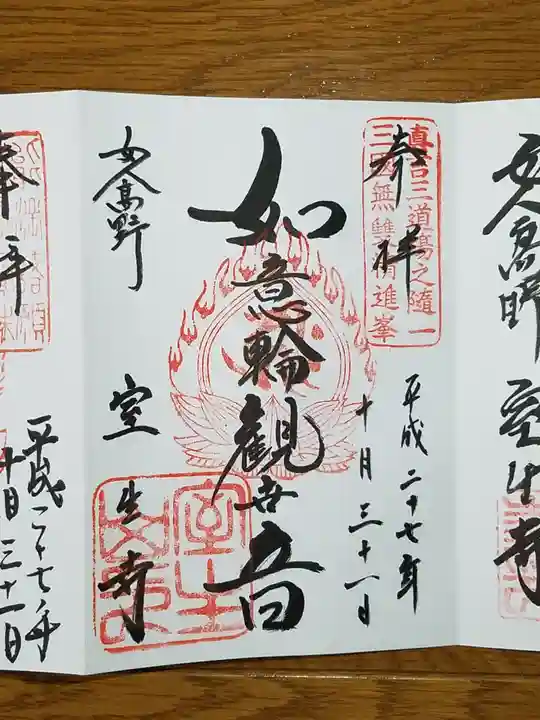 女人高野 室生寺
奉拝
真言三道場之随一
三國無雙精進峯
平成二十七年
十月三十一日
如意輪観世音
女人高野
室生寺
室生山印
奉拝
平成二十七年
十月三十一日